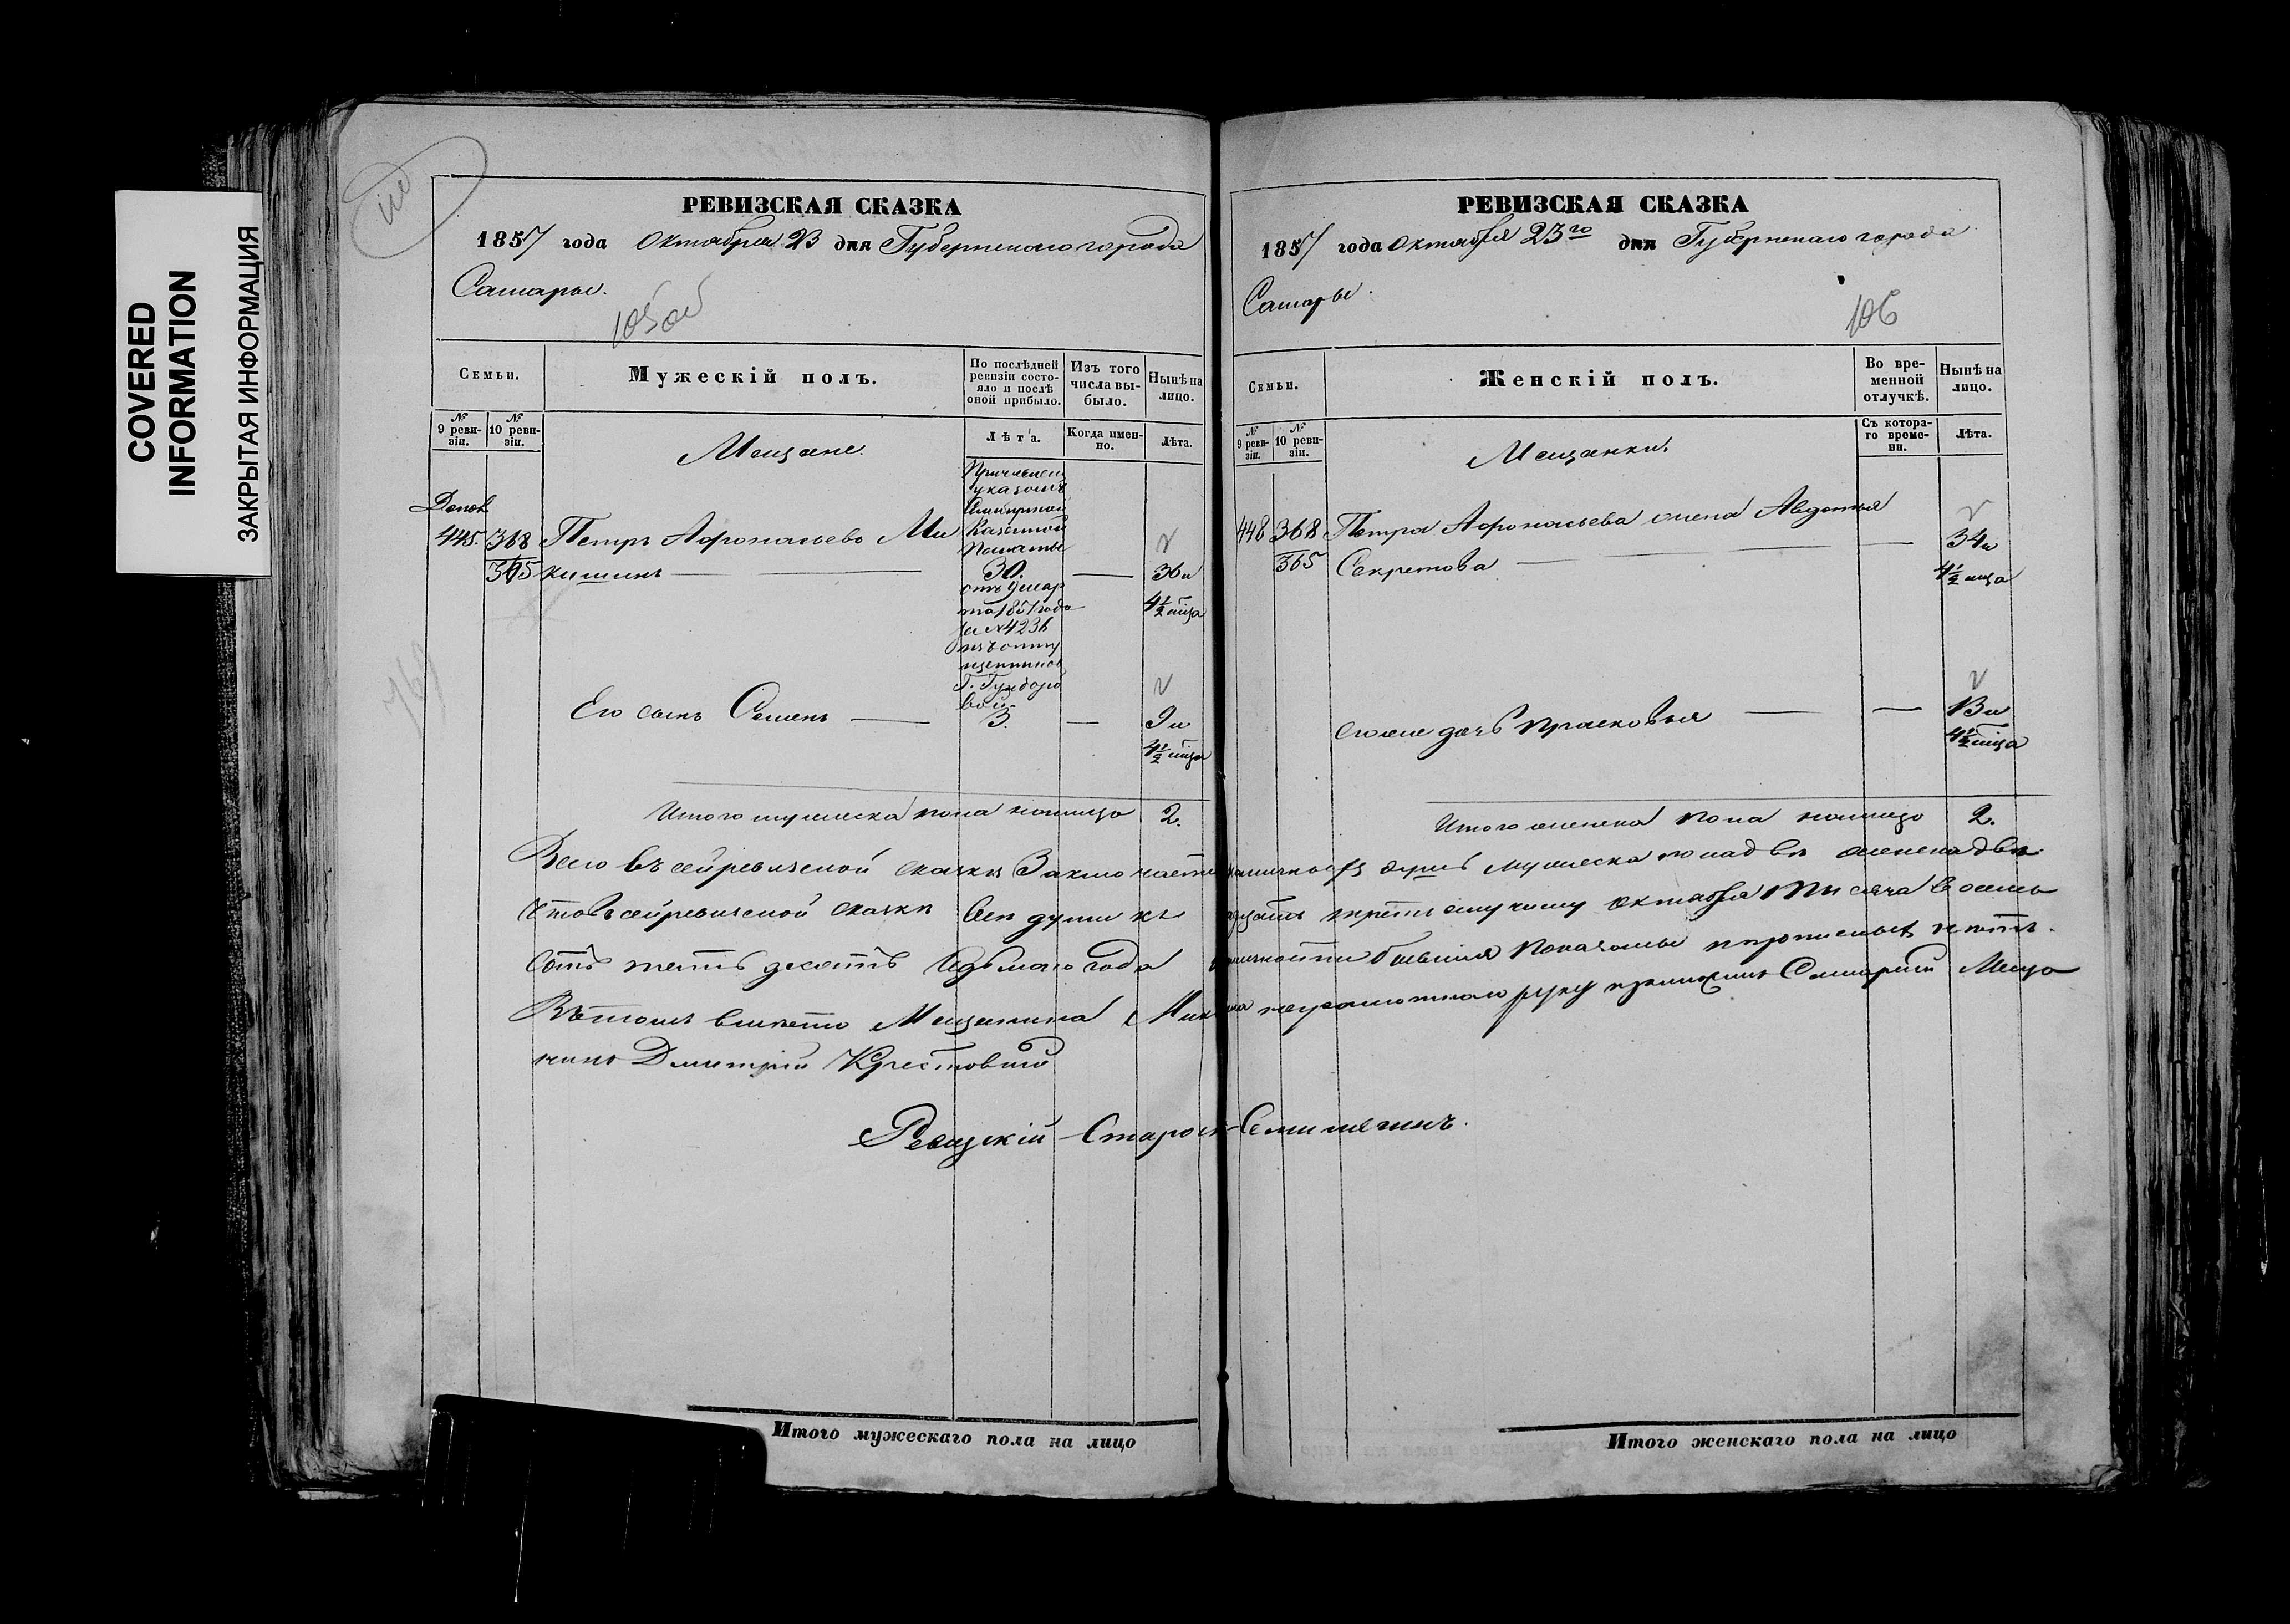 COVERED
INFORMATION
ЗАКРЫТАЯ ИНФОРМАЦИЯ
РЕВИЗСКАЯ СКАЗКА
1857 года Октября 23 дня Губернскаго города
Самары.
105 об
Семьи.
Мужескій полъ.
По послѣдней
ревизіи состо-
яло и послѣ
оной прибыло.
Изъ того
числа вы-
было.
Нынѣ на
лицо.
№
9 реви-
зіи.
№
10 реви-
зіи.
Лѣта.
Когда имен-
но.
Лѣта.
Мещане.
Причислен
указомъ
Казенной
Палаты
30.
отъ 9 мар
та 1851 года
за № 4236
изъ отпу
щенниковъ
Г.
вой
3.
445. 368 Петръ Афонасьевъ Ми
365 кишинъ
36 и
4½ мца
Его сынъ Семенъ
9 и
4½ мца
Итого мужеска пола налицо 2.
РЕВИЗСКАЯ СКАЗКА
1857 года Октября 23го дня Губернскаго города
Самары.
106
Семьи.
Женскій полъ.
Во вре-
менной
отлучкѣ.
Нынѣ на
лицо.
№
9 реви-
зіи.
№
10 реви-
зіи.
Съ котора-
го време-
ни.
Лѣта.
Мещанки.
448 368 Петра Афонасьева жена Авдотья
365 Секретова
34 и
4½ мца
его же дочь Прасковья
13 и
4½ мца
Итого женска пола налицо 2.
Всего въ сей ревизской сказки Заключается наличность душъ мужеска пола двѣ женска двѣ
Что въ сей ревизской сказки всѣ души къ двадцать третьему числу октября тысяча восемь
сотъ пятьдесятъ седьмого года наличности бывшія показаны
Въ томъ вместо Мещанина неграмотнаго руку приложилъ Самарскій Меща
нинъ Дмитрій Крестовскій
Ревизскій Староста
Итого мужескаго пола на лицо
Итого женскаго пола на лицо